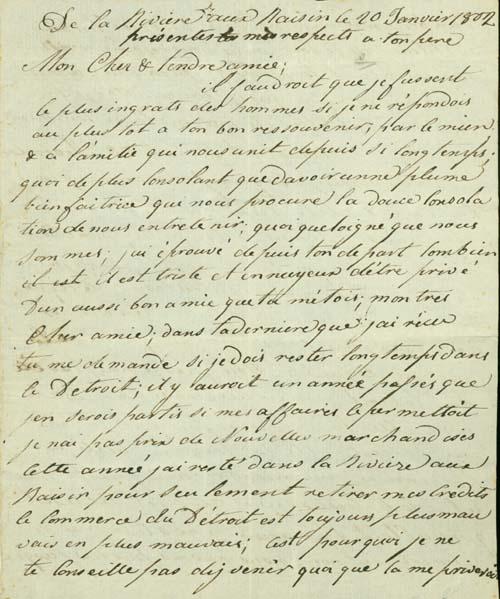 De la Rivière aux Raisin le 20 Janvier 1802
présentes mes respects a ton pere
Mon Cher & tendre amie;
il faudroit que je fussent
le plus ingrats des hommes si je ne répondois
au plus tot a ton bon ressouvenir, par le mien
& a l'amitié qui nous unit depuis si longtemps;
quoi de plus Consolant que d'avoir unne plume
bienfaitrice qui nous procure la douce Consola
tion de nous entretenir; quoique loigné que nous
sommes; jai éprouvé depuis ton depart Combien
il est il est triste et ennuyeux d'être privé
D'un aussi bon amie que tu métois; mon tres
Cher amie, dans taderniere que jai récue
tu me demande si je dois rester longtemps dans
le Détroit; il y auroit un année passés que
jen serois partis si mes affaires le permettoit
je nai pas prix de Nouvelles marchandises
Cette année jai resté dans la Rivière aux
Raisin pour seulement retirer mes Crédits
le Commerce du Détroit est toujours plus mau
vais en plus mauvais; C'est pourquoi je ne
te Conseille pas dij venir quoi que la me